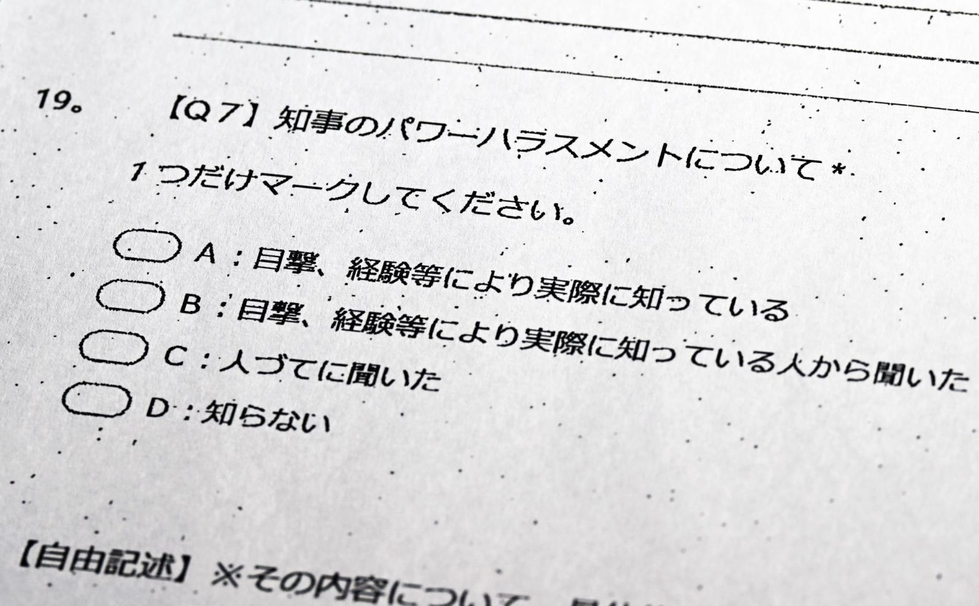 19。 【Q7】知事のパワーハラスメントについて *
1 つだけマークしてください。
A：目撃、経験等により実際に知っている
B：目撃、経験等により実際に知っている人から聞いた
C：人づてに聞いた
D：知らない
【自由記述】※その内容について